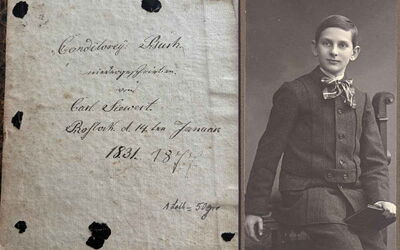 Conditorey Buch
niedergeschrieben
von
Carl Siewert.
Rostock d. 14ten Januar
1831. 18